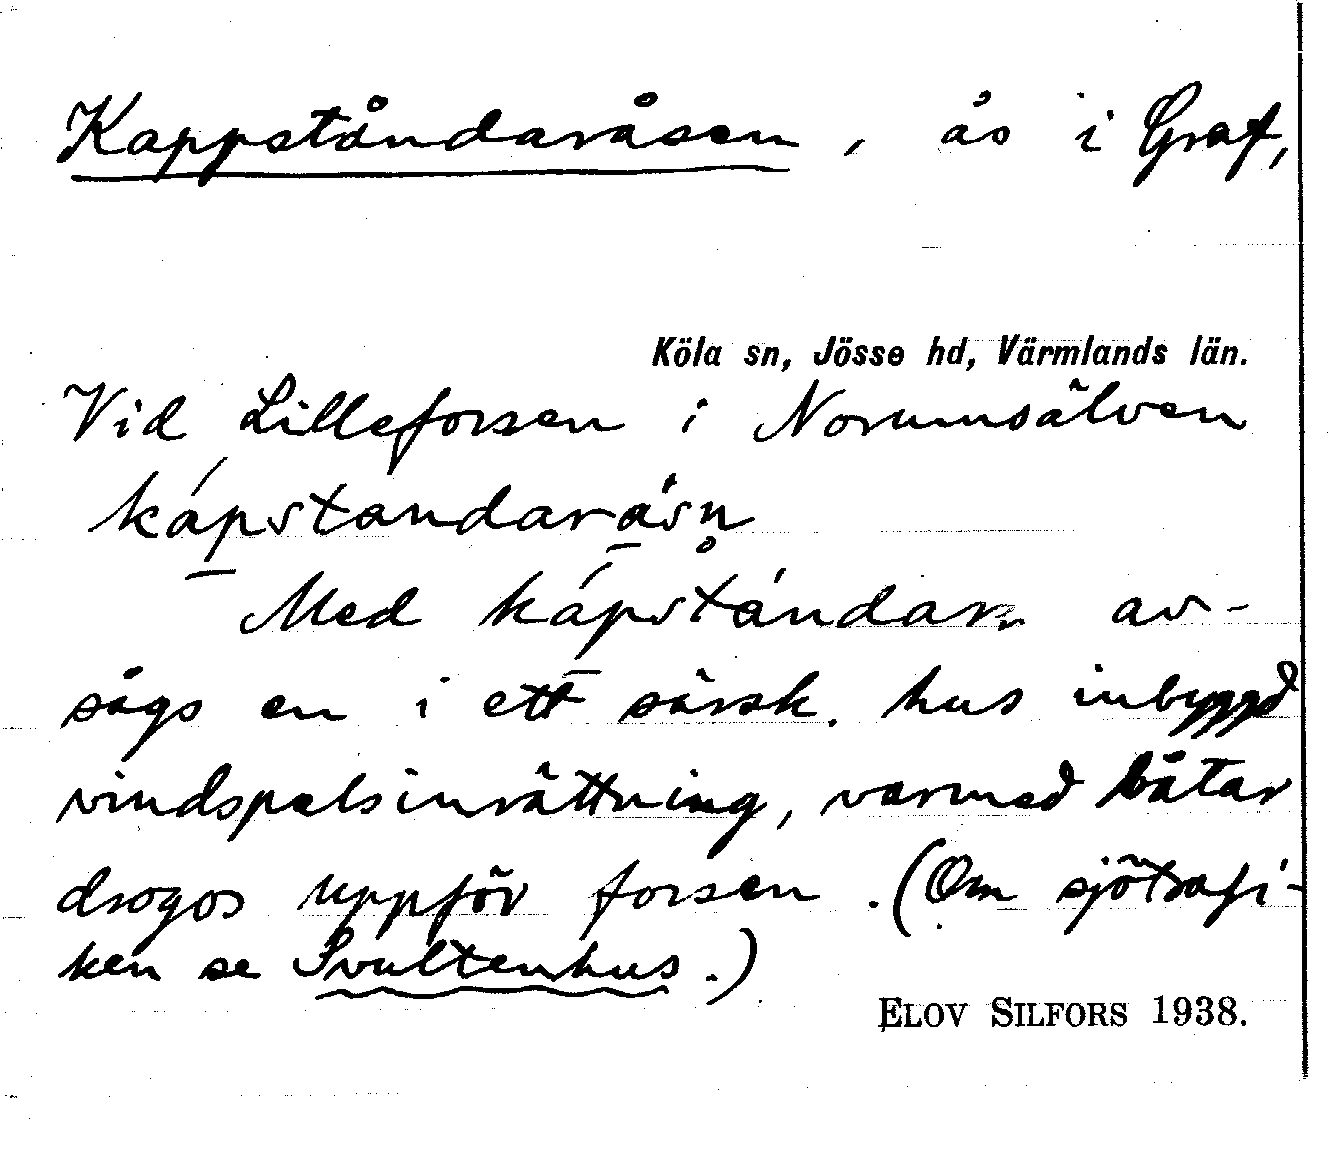 Kappståndaråsen, ås i Graf,
Köla sn, Jösse hd, Värmlands län.
Vid Lilleforsen i Norumsälven
kápstandaråsn̥
Med kápstándarn av-
sågs en i ett särsk. hus inbyggd
vindspelsinrättning, varmed båtar
drogos uppför forsen. (Om sjötrafi-
ken se Svultenhus.)
ELOV SILFORS 1938.